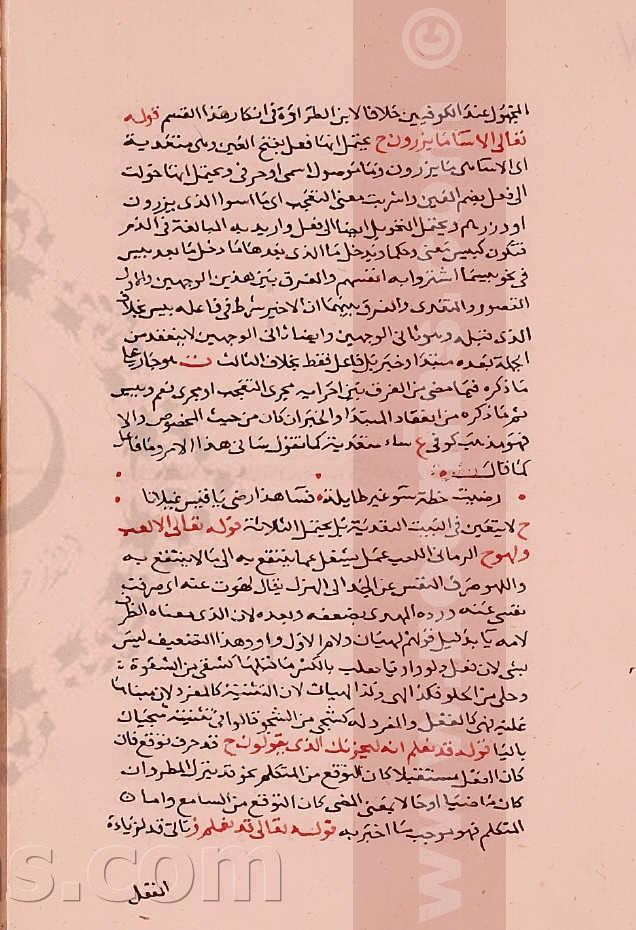 المجهول عند الكوفيين خلافا لابن الطراوة في انكار هذا القسم قوله
تعالى الا سا ما يزرون ح يحتمل انها فعل بفتح العين وهي متعدية
اي الا ساهم ما يزرون وما موصول اسمي او حرفي ويحتمل انها حولت
الى فعل بضم العين واشربت معنى التعجب اي ما اسوا الذي يزرون
او وزرهم ويحتمل التحويل ايضا الى فعل واريد به المبالغة في الذم
فتكون كبيس معنى وحكما ويدخل ما الذي بعدها ما دخل ما بعد بيس
في نحو بيسما اشتروا به انفسهم والفرق بين هذين الوجهين والاول
القصور والتعدي والفرق بينهما ان الاخير شرط في فاعله بيس بخلاف
الذي قبله وهو ثاني الوجهين وايضا ثاني الوجهين لا ينعقد من
الجملة بعده مبتدا وخبر بل فاعل فقط بخلاف الثالث
ما ذكره فيما مضى من الفرق بين اجرايه مجرى التعجب او مجرى نعم وبيس
ثم ما ذكره من انعقاد المبتدا والخبر ان كان من حيث المخصوص والا
فهو مذهب كوفي ع ساء متعدية كما تقول سائي هذا الامر وما فاعل
كما قال
رضيت خطة سو غير طايلة فساها هذا رضى يا قيس عيلانا
ح لا يتعين في البيت التعدية بل يحتمل الثلاثة قوله تعالى الا لعب
ولهو ح الرماني اللعب عمل يشغل عما ينتفع به الى ما لا ينتفع به
واللهو صرف النفس عن الجد الى الهزل يقال لهوت عنه اي صرفت
نفسي عنه ورده المهدوي بضعفه وبعده لان الذي معناه الصرف
لامه يا بدليل قولهم لهيان ولام الاول واو وهذا التضعيف ليس
بشي لان فعل ولو واريا تقلب بالكسر ما قبلها كشقي من الشقوة
وحلي من الحلو فكذا لهي وكذا لهيان لان التثنية كالمفرد لان مبناها
عليه لهي كالفعل والمفرد له كشجي من الشجو قالوا في تثنيته شجيان
باليا قوله قد نعلم انه ليحزنك الذي يقولون ح قد حرف توقع فان
كان الفعل مستقبلا كان التوقع من المتكلم نحو قد ينزل المطر وان
كان ماضيا او حالا بمعنى المضي كان التوقع من السامع واما
المتكلم فهو موجب ما اخبر به قوله تعالى قد نعلم وتاتي قد لزيادة
الفعل
ns.com